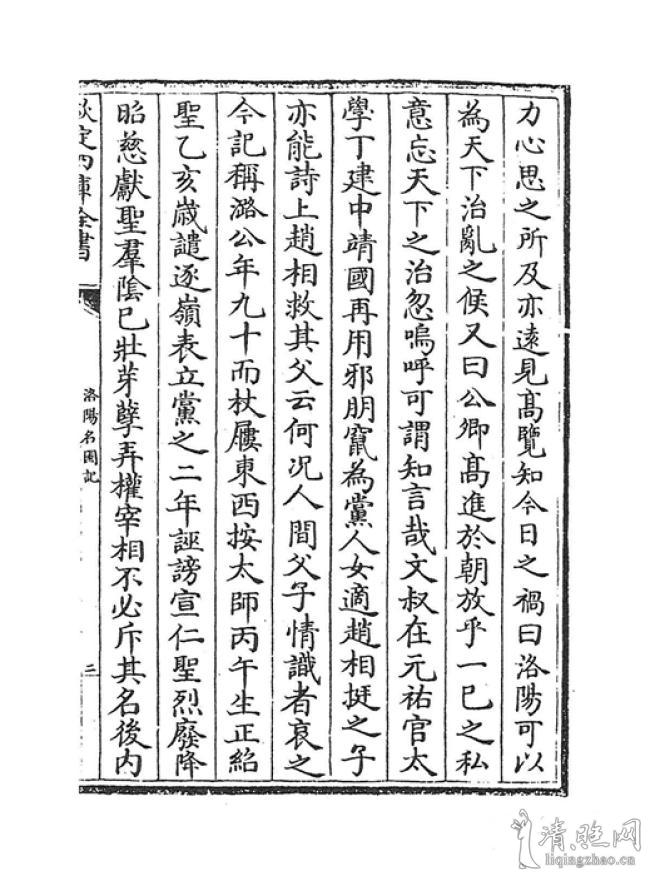 力心思之所及亦遠見髙覽知今日之禍曰洛陽可以
為天下治亂之候又曰公卿髙進於朝放乎一已之私
意忘天下之治忽嗚呼可謂知言哉文叔在元祐官太
學丁建中靖國再用邪朋竄為黨人女適趙相挺之子
亦能詩上趙相救其父云何況人間父子情識者哀之
今記稱潞公年九十而杖屨東西按太師丙午生正紹
聖乙亥嵗譴逐嶺表立黨之二年誣謗宣仁聖烈廢降
昭慈獻聖羣陰已壯芽孽弄權宰相不必斥其名後内
欽定四庫全書
洛陽名園記
二
清照网
liqingzhao.cn